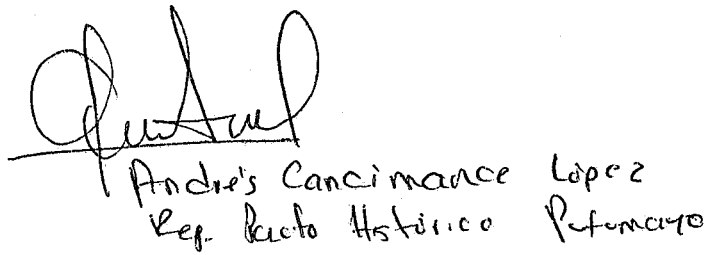 Andrés Cancimance López
Rep. Pacto Histórico Putumayo